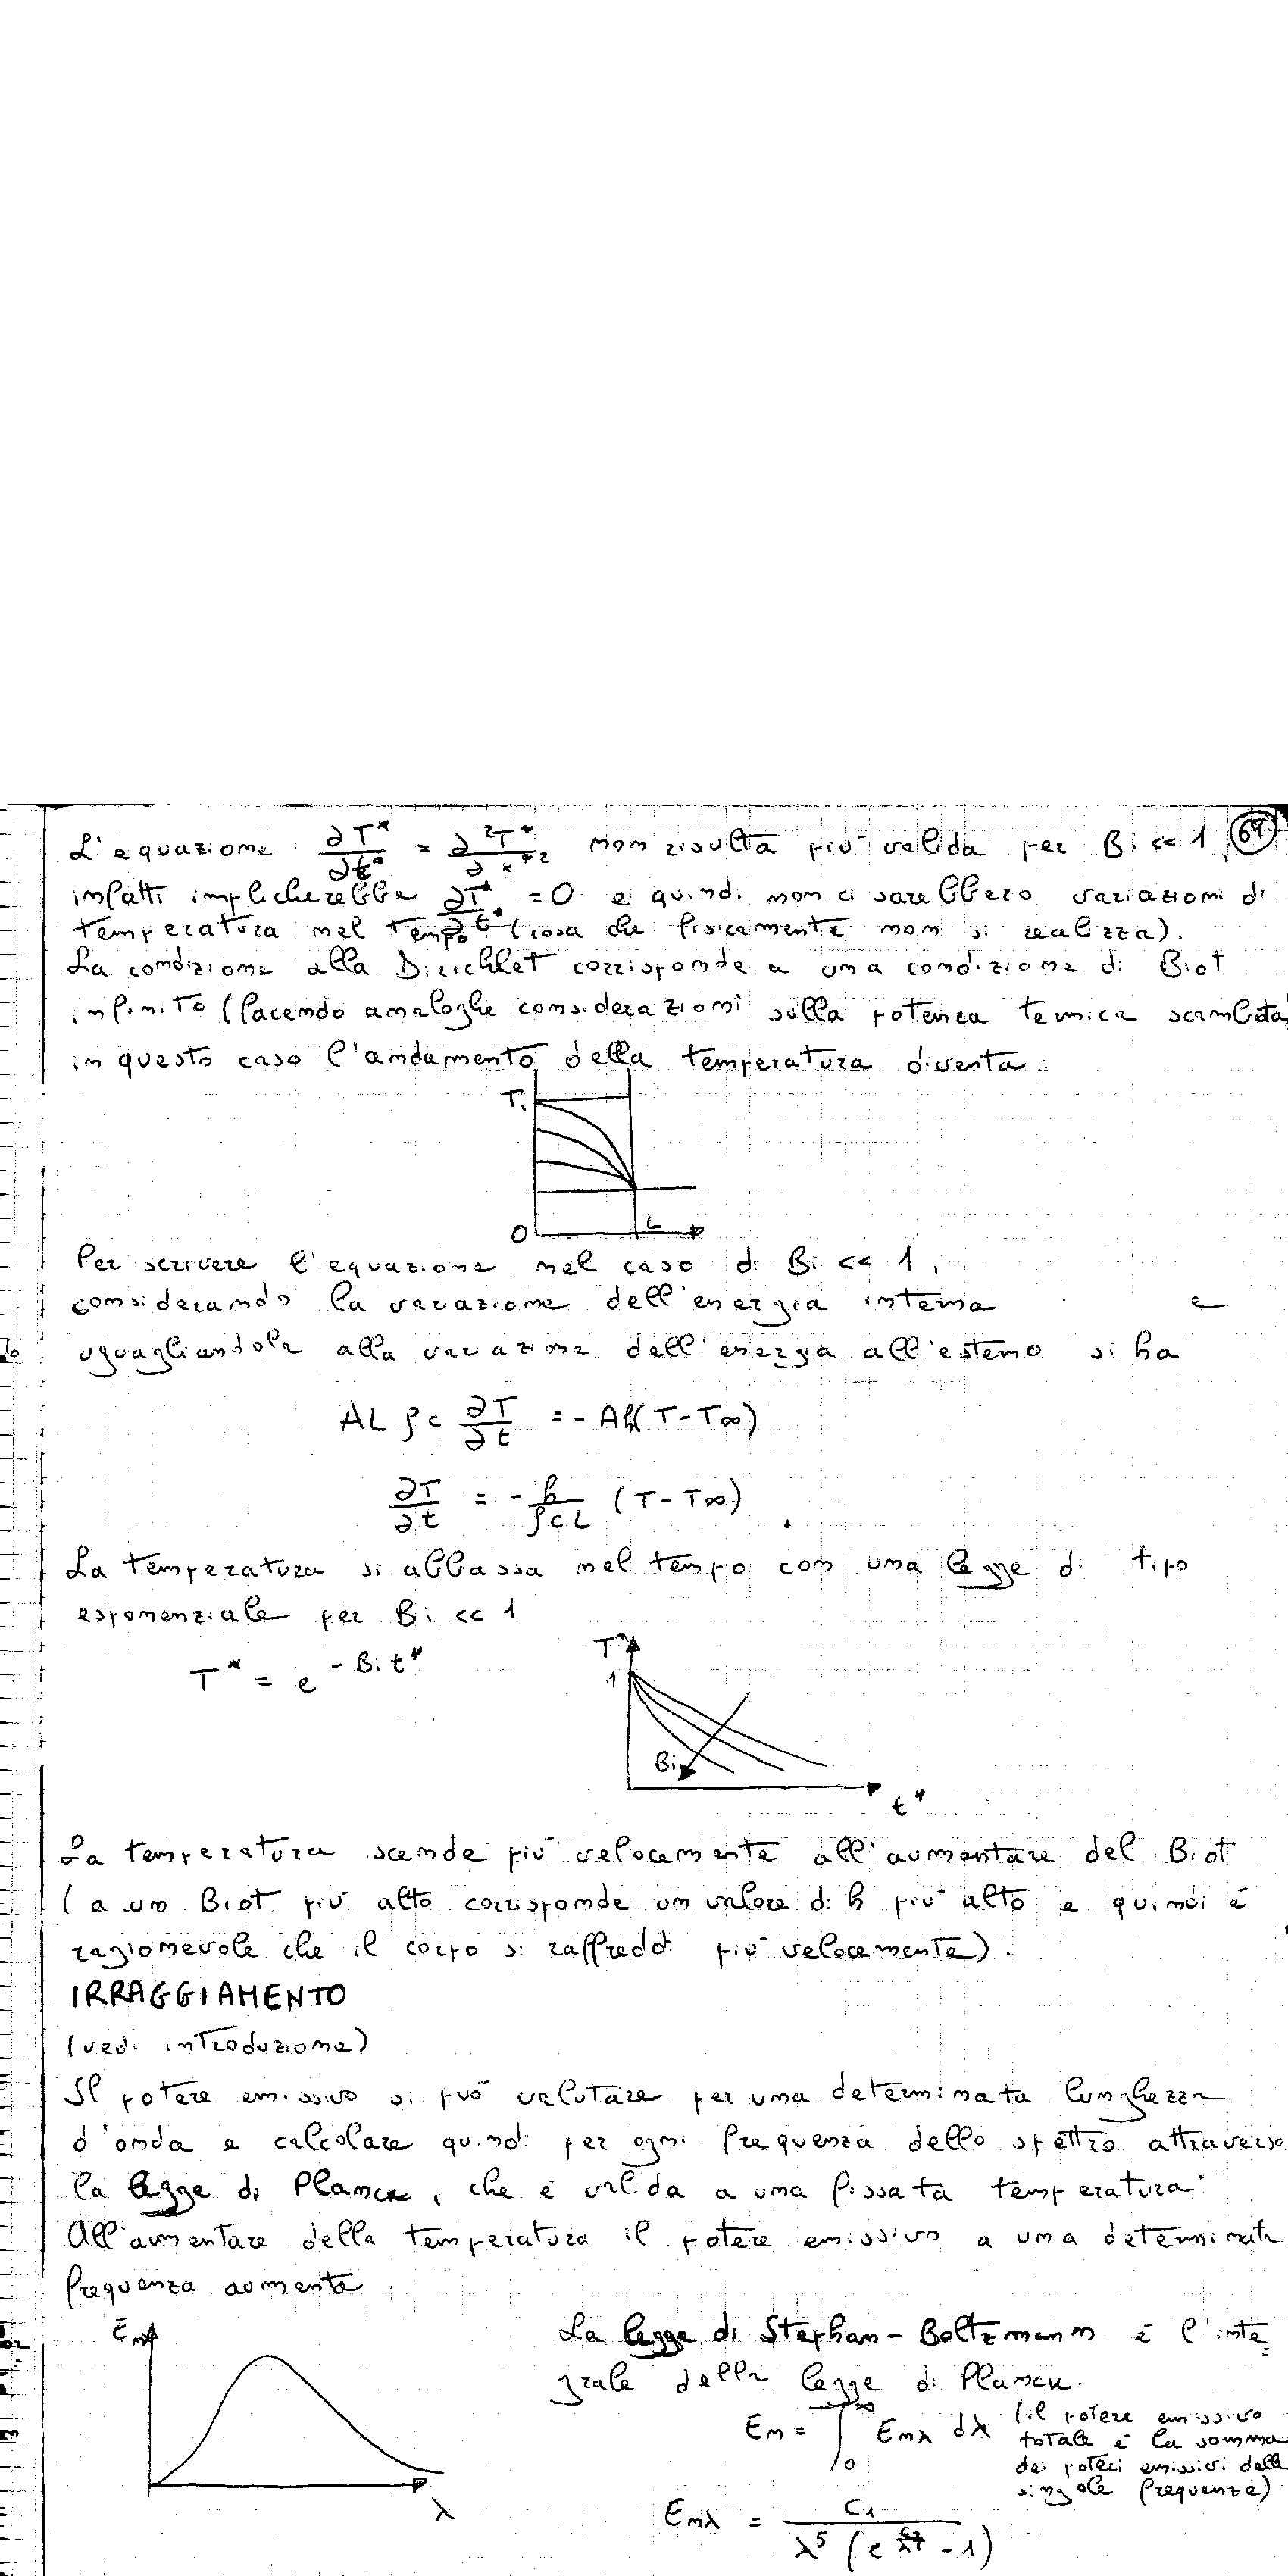 L'equazione ∂T*/∂t* = ∂²T*/∂x*² non risulta più valida per Bi << 1, 69
infatti implicherebbe ∂T*/∂t* = 0 e quindi non ci sarebbero variazioni di
temperatura nel tempo (cosa che fisicamente non si realizza).
La condizione alla Dirichlet corrisponde a una condizione di Biot
infinito (facendo analoghe considerazioni sulla potenza termica scambiata
in questo caso l'andamento della temperatura diventa:
Ti
0 L
Per scrivere l'equazione nel caso di Bi << 1,
considerando la variazione dell'energia interna e
uguagliandola alla variazione dell'energia all'esterno si ha
AL ρc ∂T/∂t = - Ah(T - T∞)
∂T/∂t = - h/ρcL (T - T∞)
La temperatura si abbassa nel tempo con una legge di tipo
esponenziale per Bi << 1
T* = e^(-Bi t*)
T*
1
Bi
t*
La temperatura scende più velocemente all'aumentare del Biot
(a un Biot più alto corrisponde un valore di h più alto e quindi è
ragionevole che il corpo si raffreddi più velocemente).
IRRAGGIAMENTO
(vedi introduzione)
Il potere emissivo si può valutare per una determinata lunghezza
d'onda e calcolare quindi per ogni frequenza dello spettro attraverso
la legge di Planck, che è valida a una fissata temperatura.
All'aumentare della temperatura il potere emissivo a una determinata
frequenza aumenta
En
λ
La legge di Stephan-Boltzmann è l'inte=
grale della legge di Planck.
En = ∫₀^∞ Enλ dλ (il potere emissivo
totale è la somma
dei poteri emissivi delle
singole frequenze)
Enλ = C₁/λ⁵(e^(C₂/λT) - 1)